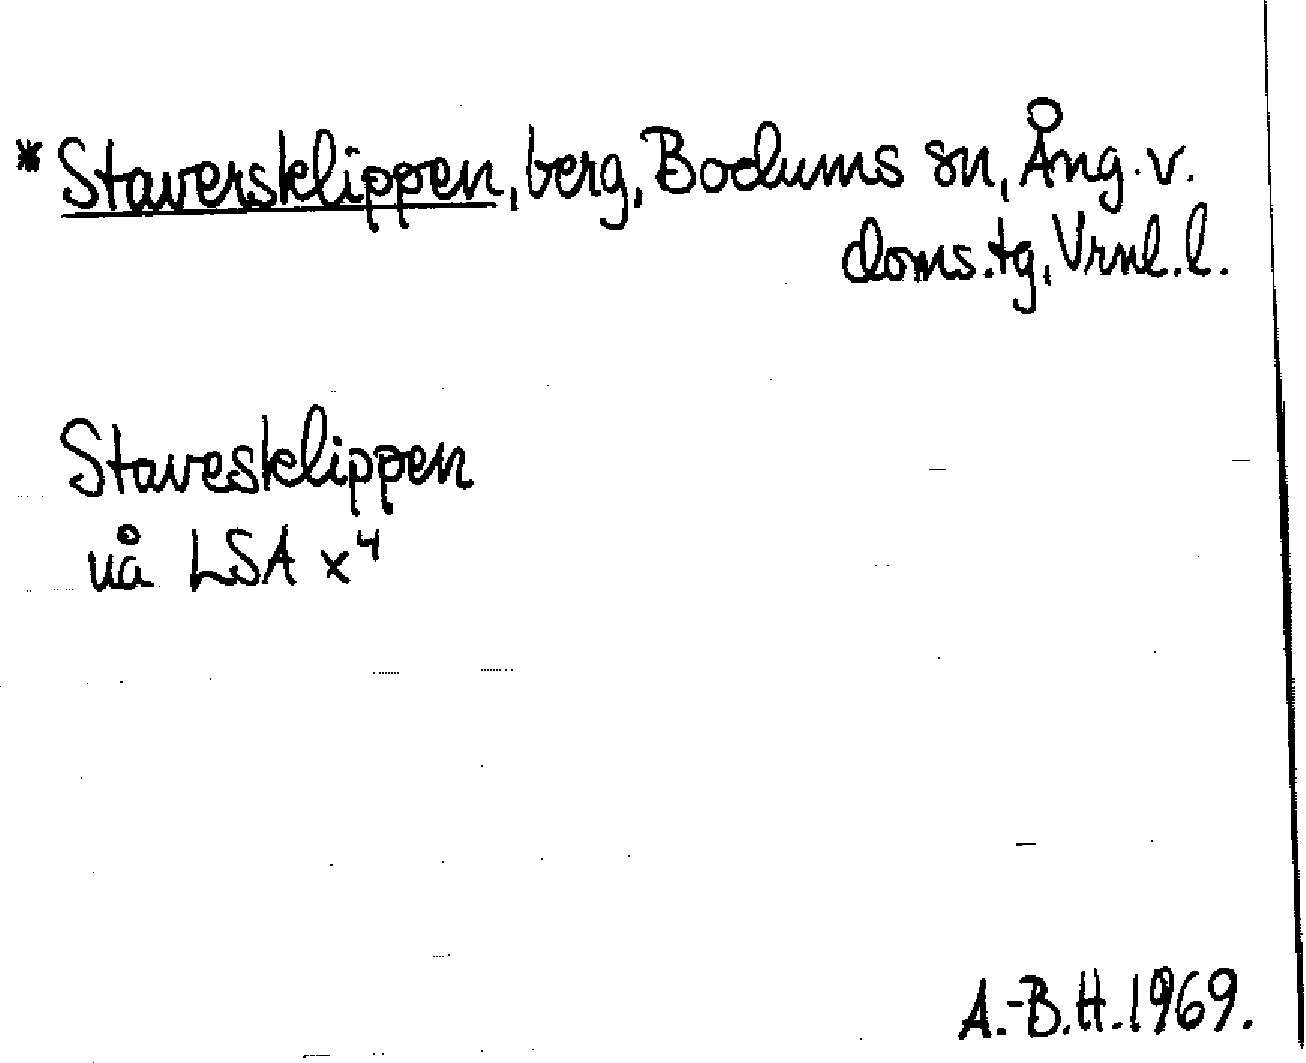 * Staversklippen, berg, Bodums sn, Ång. v.
doms.tg, Vrnl. l.
Stavesklippen
uå LSA x⁴
A.-B.H. 1969.